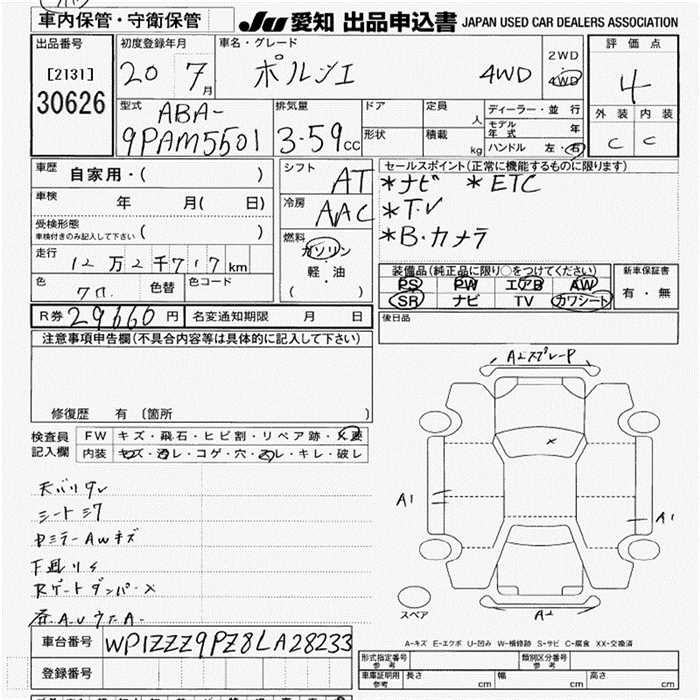 車内保管・守衛保管
JU 愛知 出品申込書 JAPAN USED CAR DEALERS ASSOCIATION
出品番号 初度登録年月 車名・グレード 評価点
[2131] 20 7月 ポルシェ 4WD 2WD 4WD 4
30626
型式 排気量 ドア 定員 人 ディーラー・並行 外装 内装
ABA- モデル年式 年
9PAM5501 3.59cc 形状 積載 kg ハンドル 左・右 C C
車歴 自家用・( ) シフト AT セールスポイント(正常に機能するものに限ります)
*ナビ *ETC
車検 年 月( 日) 冷房 AAC *T.V
受検形態 車検付きのみ記入して下さい ( ) 燃料 ガソリン *B.カメラ
走行 12万2千717km 軽・油 装備品(純正品に限り○をつけてください) 新車保証書
色 クロ 色替 色コード ( ) PS PW エアB AW 有・無
SR ナビ TV カワシート
R券 29660円 名変通知期限 月 日 後日品
注意事項申告欄(不具合内容等は具体的に記入して下さい)
A2スプレーP
修復歴 有 〔箇所 〕
検査員 FW キズ・飛石・ヒビ割・リペア跡・X要
記入欄 内装 キズ・汚レ・コゲ・穴・スレ・キレ・破レ
天バリ
シート
A1 A1
AWキズ
下廻り
Rゲートダンパーx
スペア A2
A-キズ E-エクボ U-凹み W-補修跡 S-サビ C-腐食 XX-交換済
車台番号 WP1ZZZ9PZ8LA28233
形式指定番号 参考 類別区分番号 参考
登録番号 車庫証明用 参考 長さ cm 幅 cm 高さ cm